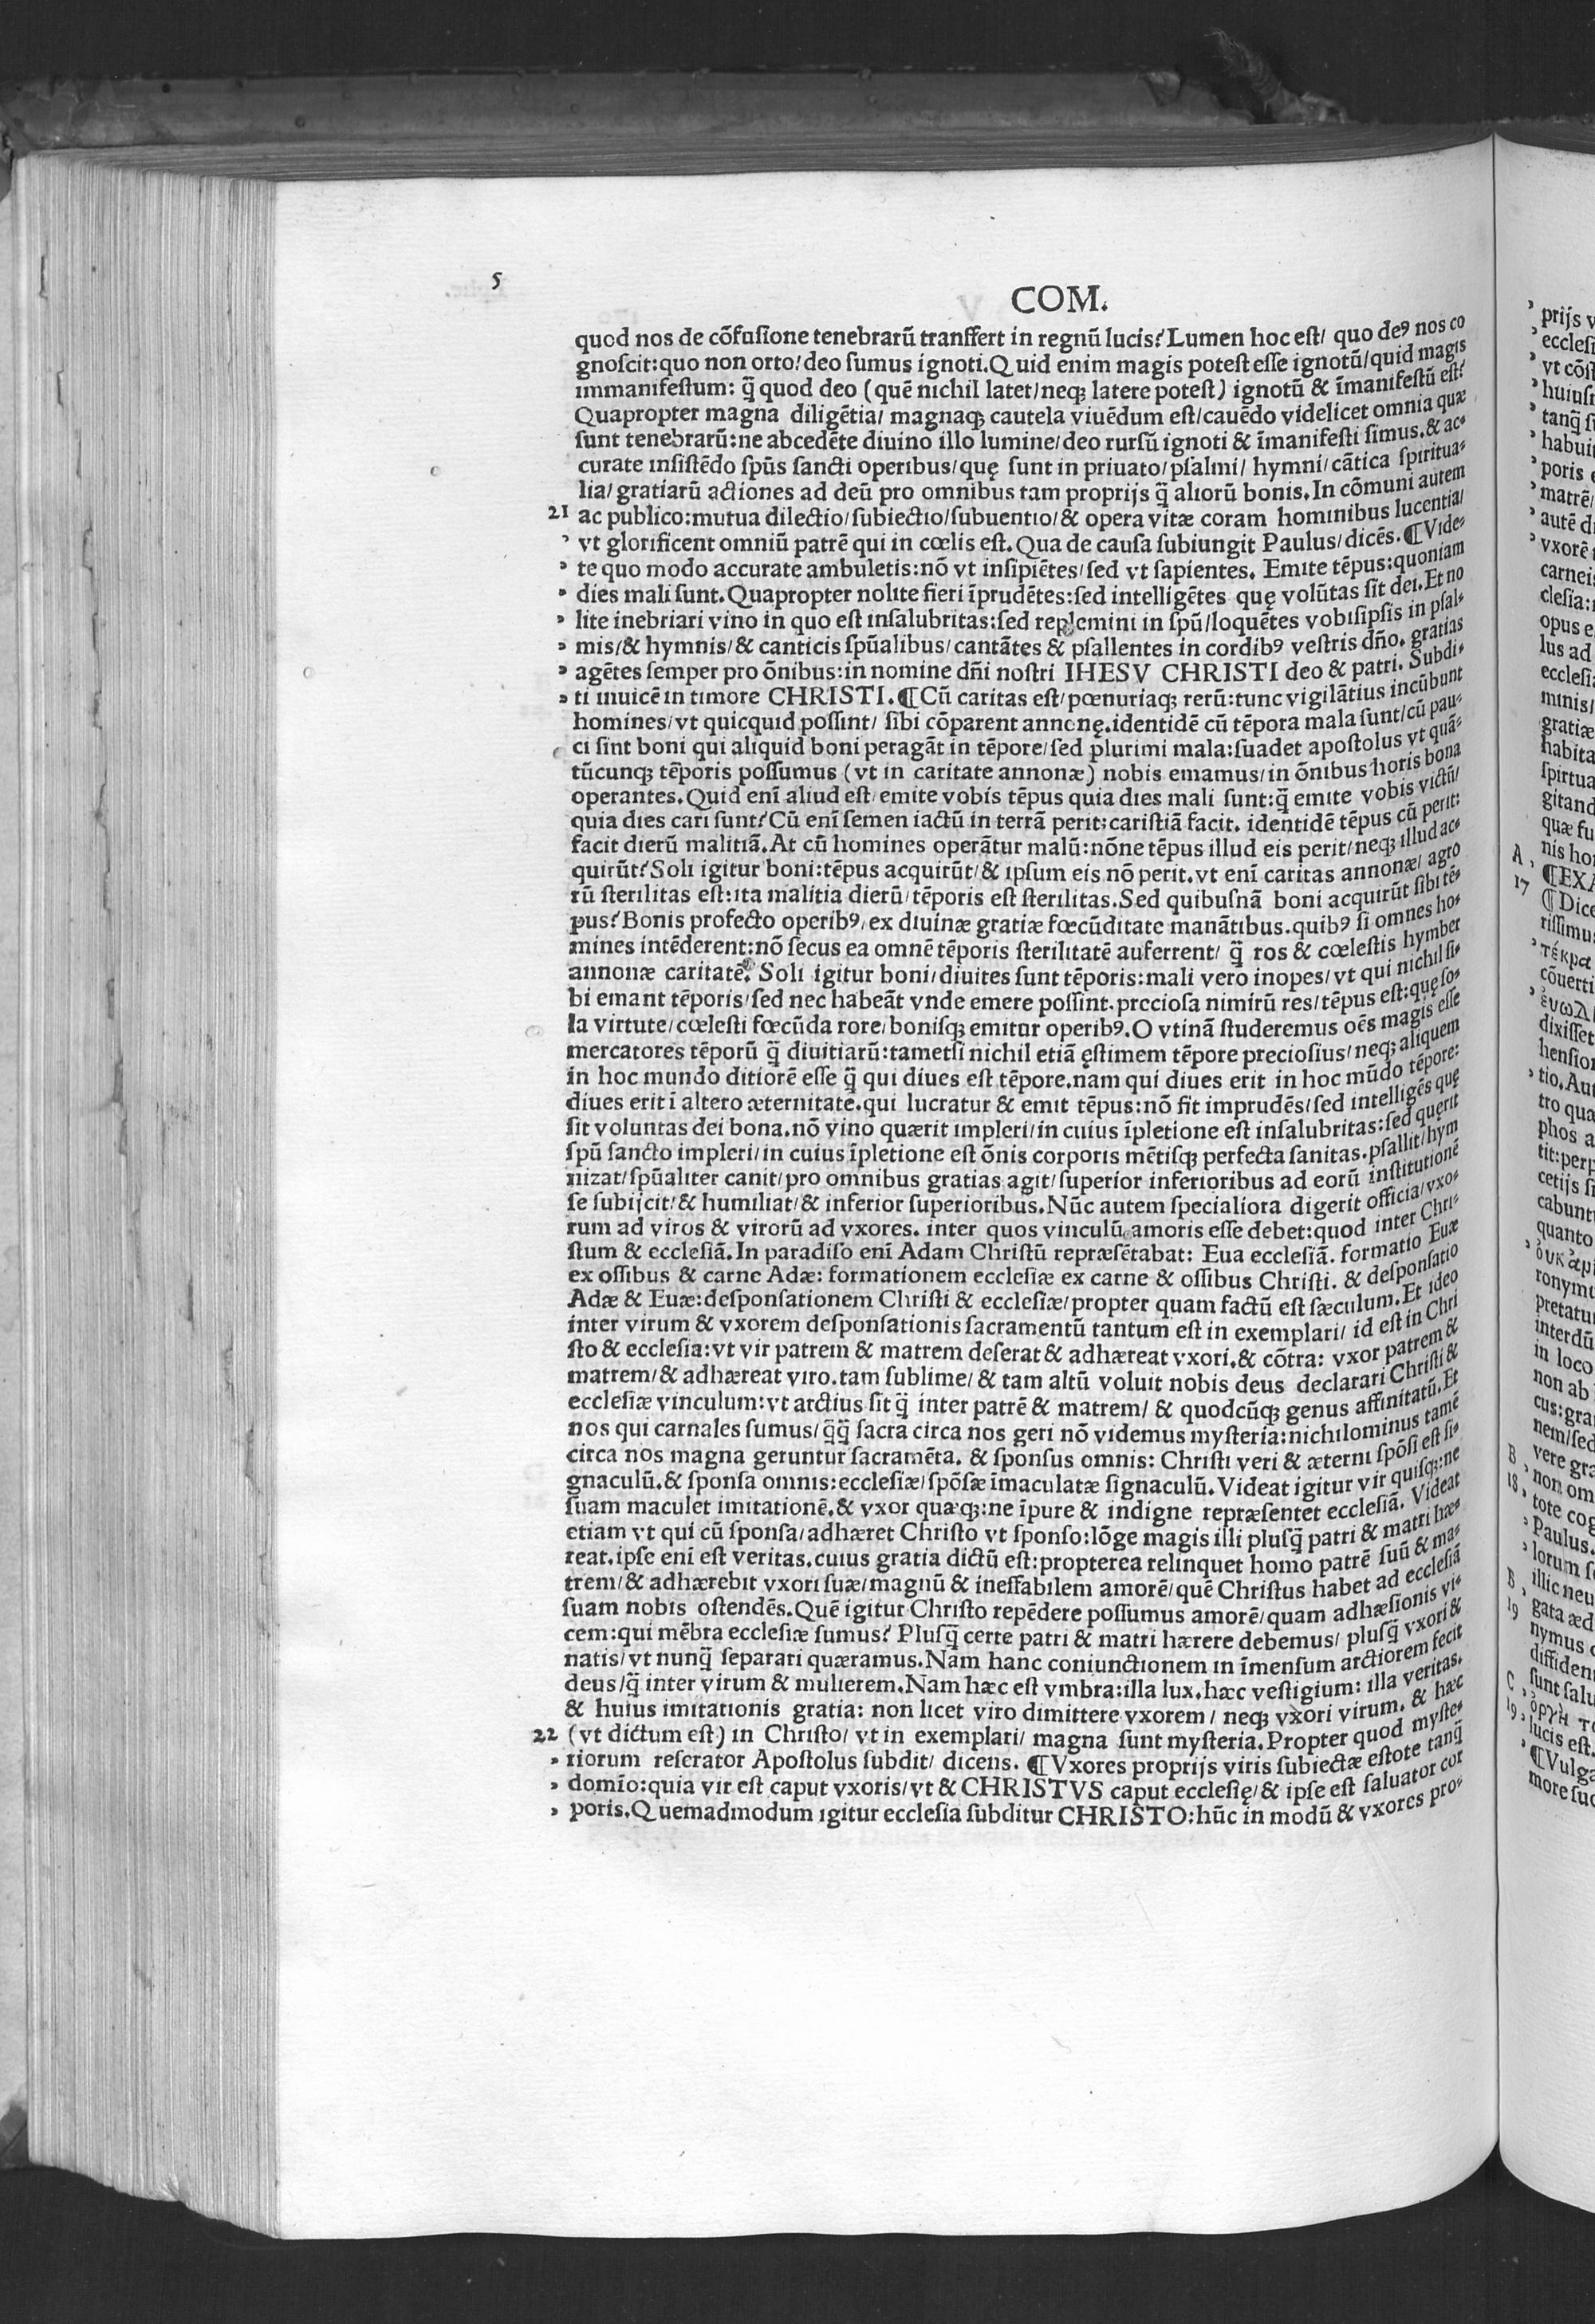 5
COM.
quod nos de cõfuſione tenebrarũ tranſfert in regnũ lucis? Lumen hoc eſt/ quo deꝰ nos co
gnoſcit: quo non orto/ deo ſumus ignoti. Quid enim magis poteſt eſſe ignotũ/ quid magis
immanifeſtum: q̃ quod deo (quẽ nichil latet/ neqꝫ latere poteſt) ignotũ & ĩmanifeſtũ eſt?
Quapropter magna diligẽtia/ magnaqꝫ cautela viuẽdum eſt/ cauẽdo videlicet omnia quæ
ſunt tenebrarũ: ne abcedẽte diuino illo lumine/ deo rurſũ ignoti & ĩmanifeſti ſimus. & ac⸗
curate inſiſtẽdo ſpũs ſancti operibus/ quę ſunt in priuato/ pſalmi/ hymni/ cãtica ſpiritua⸗
lia/ gratiarũ actiones ad deũ pro omnibus tam proprijs q̃ aliorũ bonis. In cõmuni autem
21 ac publico: mutua dilectio/ ſubiectio/ ſubuentio/ & opera vitæ coram hominibus lucentia/
vt glorificent omniũ patrẽ qui in cœlis eſt. Qua de cauſa ſubiungit Paulus/ dicẽs. ¶Vide⸗
te quo modo accurate ambuletis: nõ vt inſipiẽtes/ ſed vt ſapientes. Emite tẽpus: quoniam
dies mali ſunt. Quapropter nolite fieri ĩprudẽtes: ſed intelligẽtes quę volũtas ſit dei. Et no
lite inebriari vino in quo eſt inſalubritas: ſed replemini in ſpũ/ loquẽtes vobiſipſis in pſal⸗
mis/ & hymnis/ & canticis ſpũalibus/ cantãtes & pſallentes in cordibꝰ veſtris dño. gratias
agẽtes ſemper pro õnibus: in nomine dñi noſtri IHESV CHRISTI deo & patri. Subdi⸗
ti inuicẽ in timore CHRISTI. ¶Cũ caritas eſt/ pœnuriaqꝫ rerũ: tunc vigilãtius incũbunt
homines/ vt quicquid poſſint/ ſibi cõparent annonę. identidẽ cũ tẽpora mala ſunt/ cũ pau⸗
ci ſint boni qui aliquid boni peragãt in tẽpore/ ſed plurimi mala: ſuadet apoſtolus vt quã⸗
tũcunqꝫ tẽporis poſſumus (vt in caritate annonæ) nobis emamus/ in õnibus horis bona
operantes. Quid enĩ aliud eſt/ emite vobis tẽpus quia dies mali ſunt: q̃ emite vobis victũ/
quia dies cari ſunt? Cũ enĩ ſemen iactũ in terrã perit: cariſtiã facit. identidẽ tẽpus cũ perit:
facit dierũ malitiã. At cũ homines operãtur malũ: nõne tẽpus illud eis perit/ neqꝫ illud ac⸗
quirũt? Soli igitur boni: tẽpus acquirũt/ & ipſum eis nõ perit. vt enĩ caritas annonæ/ agro
rũ ſterilitas eſt: ita malitia dierũ/ tẽporis eſt ſterilitas. Sed quibuſnã boni acquirũt ſibi tẽ⸗
pus? Bonis profecto operibꝰ, ex diuinæ gratiæ fœcũditate manãtibus. quibꝰ ſi omnes ho⸗
mines intẽderent: nõ ſecus ea omnẽ tẽporis ſterilitatẽ auferrent/ q̃ ros & cœleſtis hymber
annonæ caritatẽ. Soli igitur boni/ diuites ſunt tẽporis: mali vero inopes/ vt qui nichil ſi⸗
bi emant tẽporis/ ſed nec habeãt vnde emere poſſint. precioſa nimirũ res/ tẽpus eſt: quę ſo⸗
la virtute/ cœleſti fœcũda rore/ boniſqꝫ emitur operibꝰ. O vtinã ſtuderemus oẽs magis eſſe
mercatores tẽporũ q̃ diuitiarũ: tametſi nichil etiã ęſtimem tẽpore precioſius/ neqꝫ aliquem
in hoc mundo ditiorẽ eſſe q̃ qui diues eſt tẽpore. nam qui diues erit in hoc mũdo tẽpore:
diues erit ĩ altero æternitate. qui lucratur & emit tẽpus: nõ fit imprudẽs/ ſed intelligẽs quę
ſit voluntas dei bona. nõ vino quærit impleri/ in cuius ĩpletione eſt inſalubritas: ſed querit
ſpũ ſancto impleri/ in cuius ĩpletione eſt õnis corporis mẽtiſqꝫ perfecta ſanitas. pſallit/ hym
nizat/ ſpũaliter canit/ pro omnibus gratias agit/ ſuperior inferioribus ad eorũ inſtitutionẽ
ſe ſubijcit/ & humiliat/ & inferior ſuperioribus. Nũc autem ſpecialiora digerit officia/ vxo⸗
rum ad viros & virorũ ad vxores. inter quos vinculũ amoris eſſe debet: quod inter Chri⸗
ſtum & eccleſiã. In paradiſo enĩ Adam Chriſtũ repræſẽtabat: Eua eccleſiã. formatio Euæ
ex oſſibus & carne Adæ: formationem eccleſiæ ex carne & oſſibus Chriſti. & deſponſatio
Adæ & Euæ: deſponſationem Chriſti & eccleſiæ/ propter quam factũ eſt ſæculum. Et ideo
inter virum & vxorem deſponſationis ſacramentũ tantum eſt in exemplari/ id eſt in Chri
ſto & eccleſia: vt vir patrem & matrem deſerat & adhæreat vxori. & cõtra: vxor patrem &
matrem/ & adhæreat viro. tam ſublime/ & tam altũ voluit nobis deus declarari Chriſti &
eccleſiæ vinculum: vt arctius ſit q̃ inter patrẽ & matrem/ & quodcũqꝫ genus affinitatũ. Et
nos qui carnales ſumus/ q̃q̃ ſacra circa nos geri nõ videmus myſteria: nichilominus tamẽ
circa nos magna geruntur ſacramẽta. & ſponſus omnis: Chriſti veri & æterni ſpõſi eſt ſi⸗
gnaculũ. & ſponſa omnis: eccleſiæ/ ſpõſæ ĩmaculatæ ſignaculũ. Videat igitur vir quiſqꝫ: ne
ſuam maculet imitationẽ. & vxor quæqꝫ: ne ĩpure & indigne repræſentet eccleſiã. Videat
etiam vt qui cũ ſponſa/ adhæret Chriſto vt ſponſo: lõge magis illi pluſq̃ patri & matri hæ⸗
reat. ipſe enĩ eſt veritas. cuius gratia dictũ eſt: propterea relinquet homo patrẽ ſuũ & ma⸗
trem/ & adhærebit vxori ſuæ/ magnũ & ineffabilem amorẽ/ quẽ Chriſtus habet ad eccleſiã
ſuam nobis oſtendẽs. Quẽ igitur Chriſto repẽdere poſſumus amorẽ/ quam adhæſionis vi⸗
cem: qui mẽbra eccleſiæ ſumus? Pluſq̃ certe patri & matri hærere debemus/ pluſq̃ vxori &
natis/ vt nunq̃ ſeparari quæramus. Nam hanc coniunctionem in ĩmenſum arctiorem fecit
deus/ q̃ inter virum & mulierem. Nam hæc eſt vmbra: illa lux. hæc veſtigium: illa veritas.
& huius imitationis gratia: non licet viro dimittere vxorem/ neqꝫ vxori virum. & hæc
22 (vt dictum eſt) in Chriſto/ vt in exemplari/ magna ſunt myſteria. Propter quod myſte⸗
riorum reſerator Apoſtolus ſubdit/ dicens. ¶Vxores proprijs viris ſubiectæ eſtote tanq̃
domĩo: quia vir eſt caput vxoris/ vt & CHRISTVS caput eccleſię/ & ipſe eſt ſaluator cor
poris. Quemadmodum igitur eccleſia ſubditur CHRISTO: hũc in modũ & vxores pro⸗